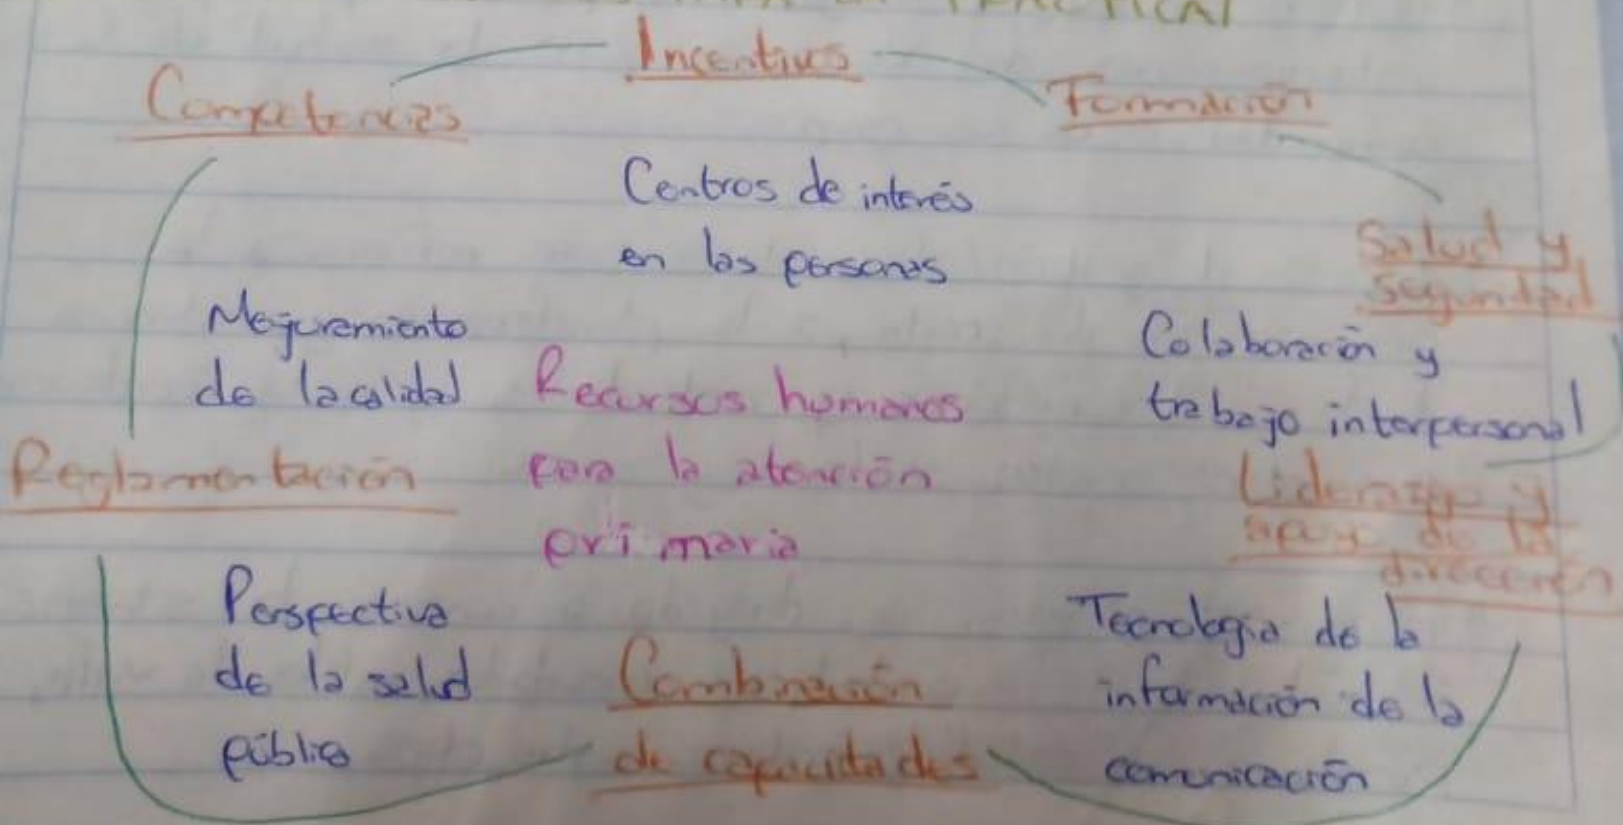 PRACTICA
Incentivos
Competencias
Formación
Centros de interés
en las personas
Salud y
seguridad
Mejoremiento
de la calidad
Colaboración y
trabajo interpersonal
Recursos humanos
para la atención
primaria
Reglamentación
Liderazgo y
apoyo de la
dirección
Perspectiva
de la salud
pública
Combinación
de capacidades
Tecnologia de la
información de la
comunicación